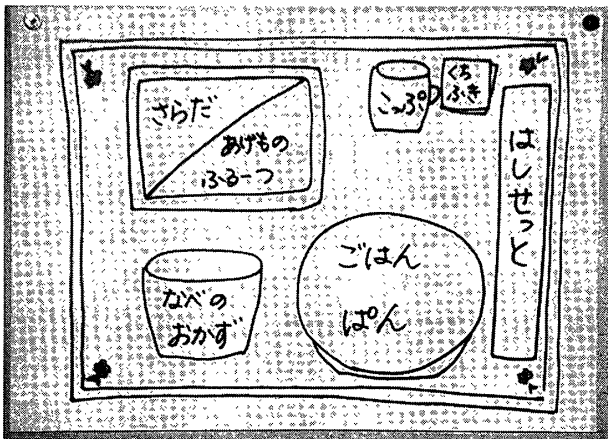 さらだ
あげもの
ふるーつ
こっぷ
くち
ふき
はしせっと
なべの
おかず
ごはん
ぱん